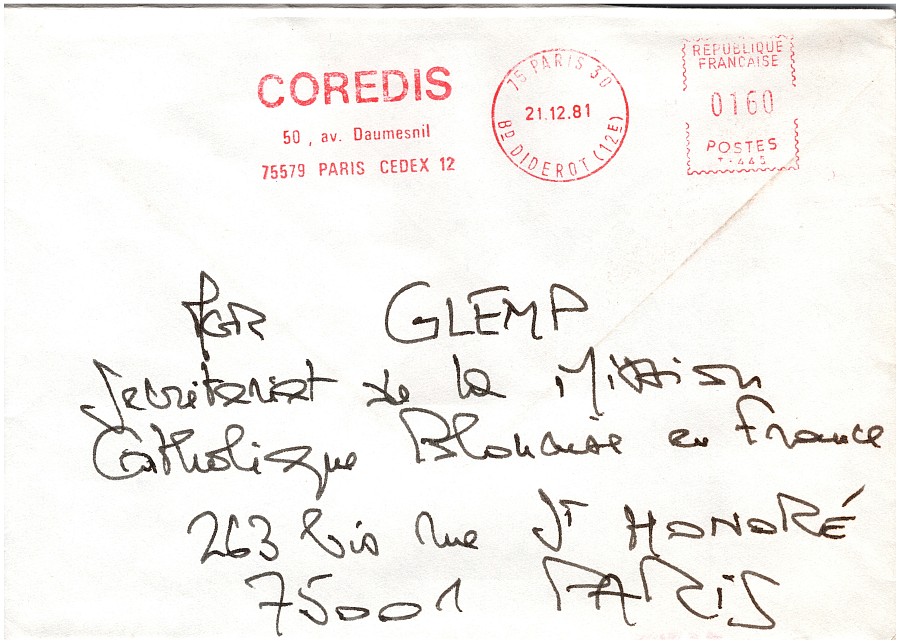 COREDIS
50, av. Daumesnil
75579 PARIS CEDEX 12
75 PARIS 30
21.12.81
BD DIDEROT (12E)
REPUBLIQUE
FRANCAISE
0160
POSTES
T.445
GLEMP
Secrétariat de la Mission
Catholique Polonaise en France
263 bis rue St HONORÉ
75001 PARIS